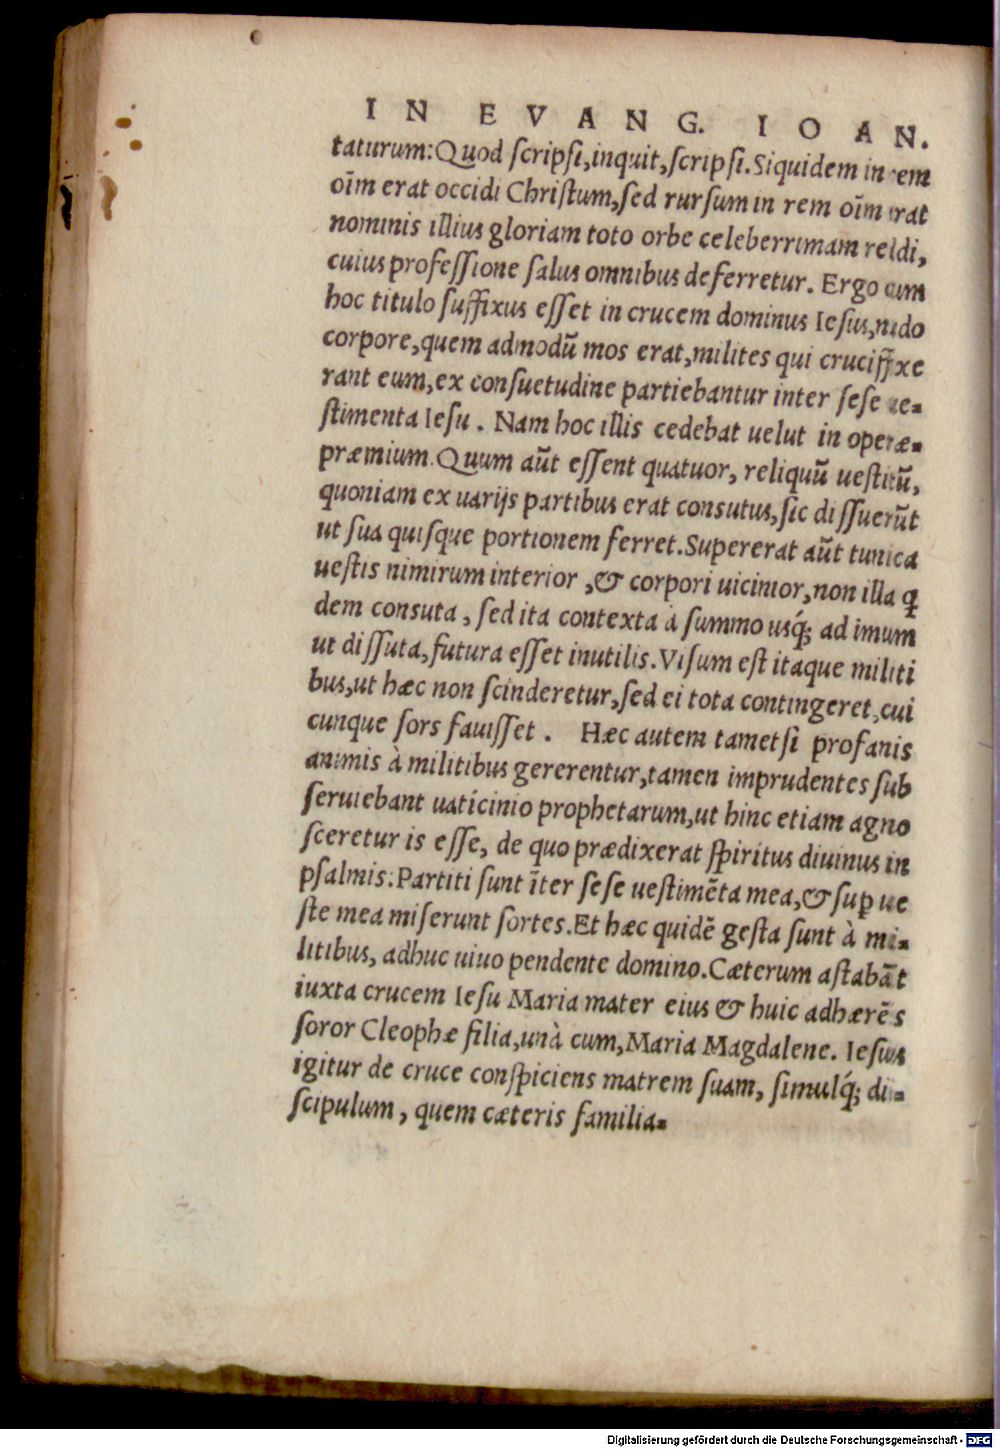 IN EVANG. IOAN.
taturum: Quod scripsi, inquit, scripsi. Siquidem in rem
oīm erat occidi Christum, sed rursum in rem oīm erat
nominis illius gloriam toto orbe celeberrimam reddi,
cuius professione salus omnibus deferretur. Ergo cum
hoc titulo suffixus esset in crucem dominus Iesus, nudo
corpore, quem admodū mos erat, milites qui crucifixe
rant eum, ex consuetudine partiebantur inter sese ue-
stimenta Iesu. Nam hoc illis cedebat uelut in operæ-
præmium. Quum aūt essent quatuor, reliquū uestitū,
quoniam ex uarijs partibus erat consutus, sic dissuerūt
ut sua quisque portionem ferret. Supererat aūt tunica
uestis nimirum interior, & corpori uicinior, non illa q̃
dem consuta, sed ita contexta à summo usq́; ad imum
ut dissuta, futura esset inutilis. Visum est itaque militi
bus, ut hæc non scinderetur, sed ei tota contingeret, cui
cunque sors fauisset. Hæc autem tametsi profanis
animis à militibus gererentur, tamen imprudentes sub
seruiebant uaticinio prophetarum, ut hinc etiam agno
sceretur is esse, de quo prædixerat spiritus diuinus in
psalmis: Partiti sunt īter sese uestimēta mea, & suꝑ ue
ste mea miserunt sortes. Et hæc quidē gesta sunt à mi-
litibus, adhuc uiuo pendente domino. Cæterum astabāt
iuxta crucem Iesu Maria mater eius & huic adhærēs
soror Cleophæ filia, unà cum, Maria Magdalene. Iesus
igitur de cruce conspiciens matrem suam, simulq́; di-
scipulum, quem cæteris familia-
Digitalisierung gefördert durch die Deutsche Forschungsgemeinschaft - DFG